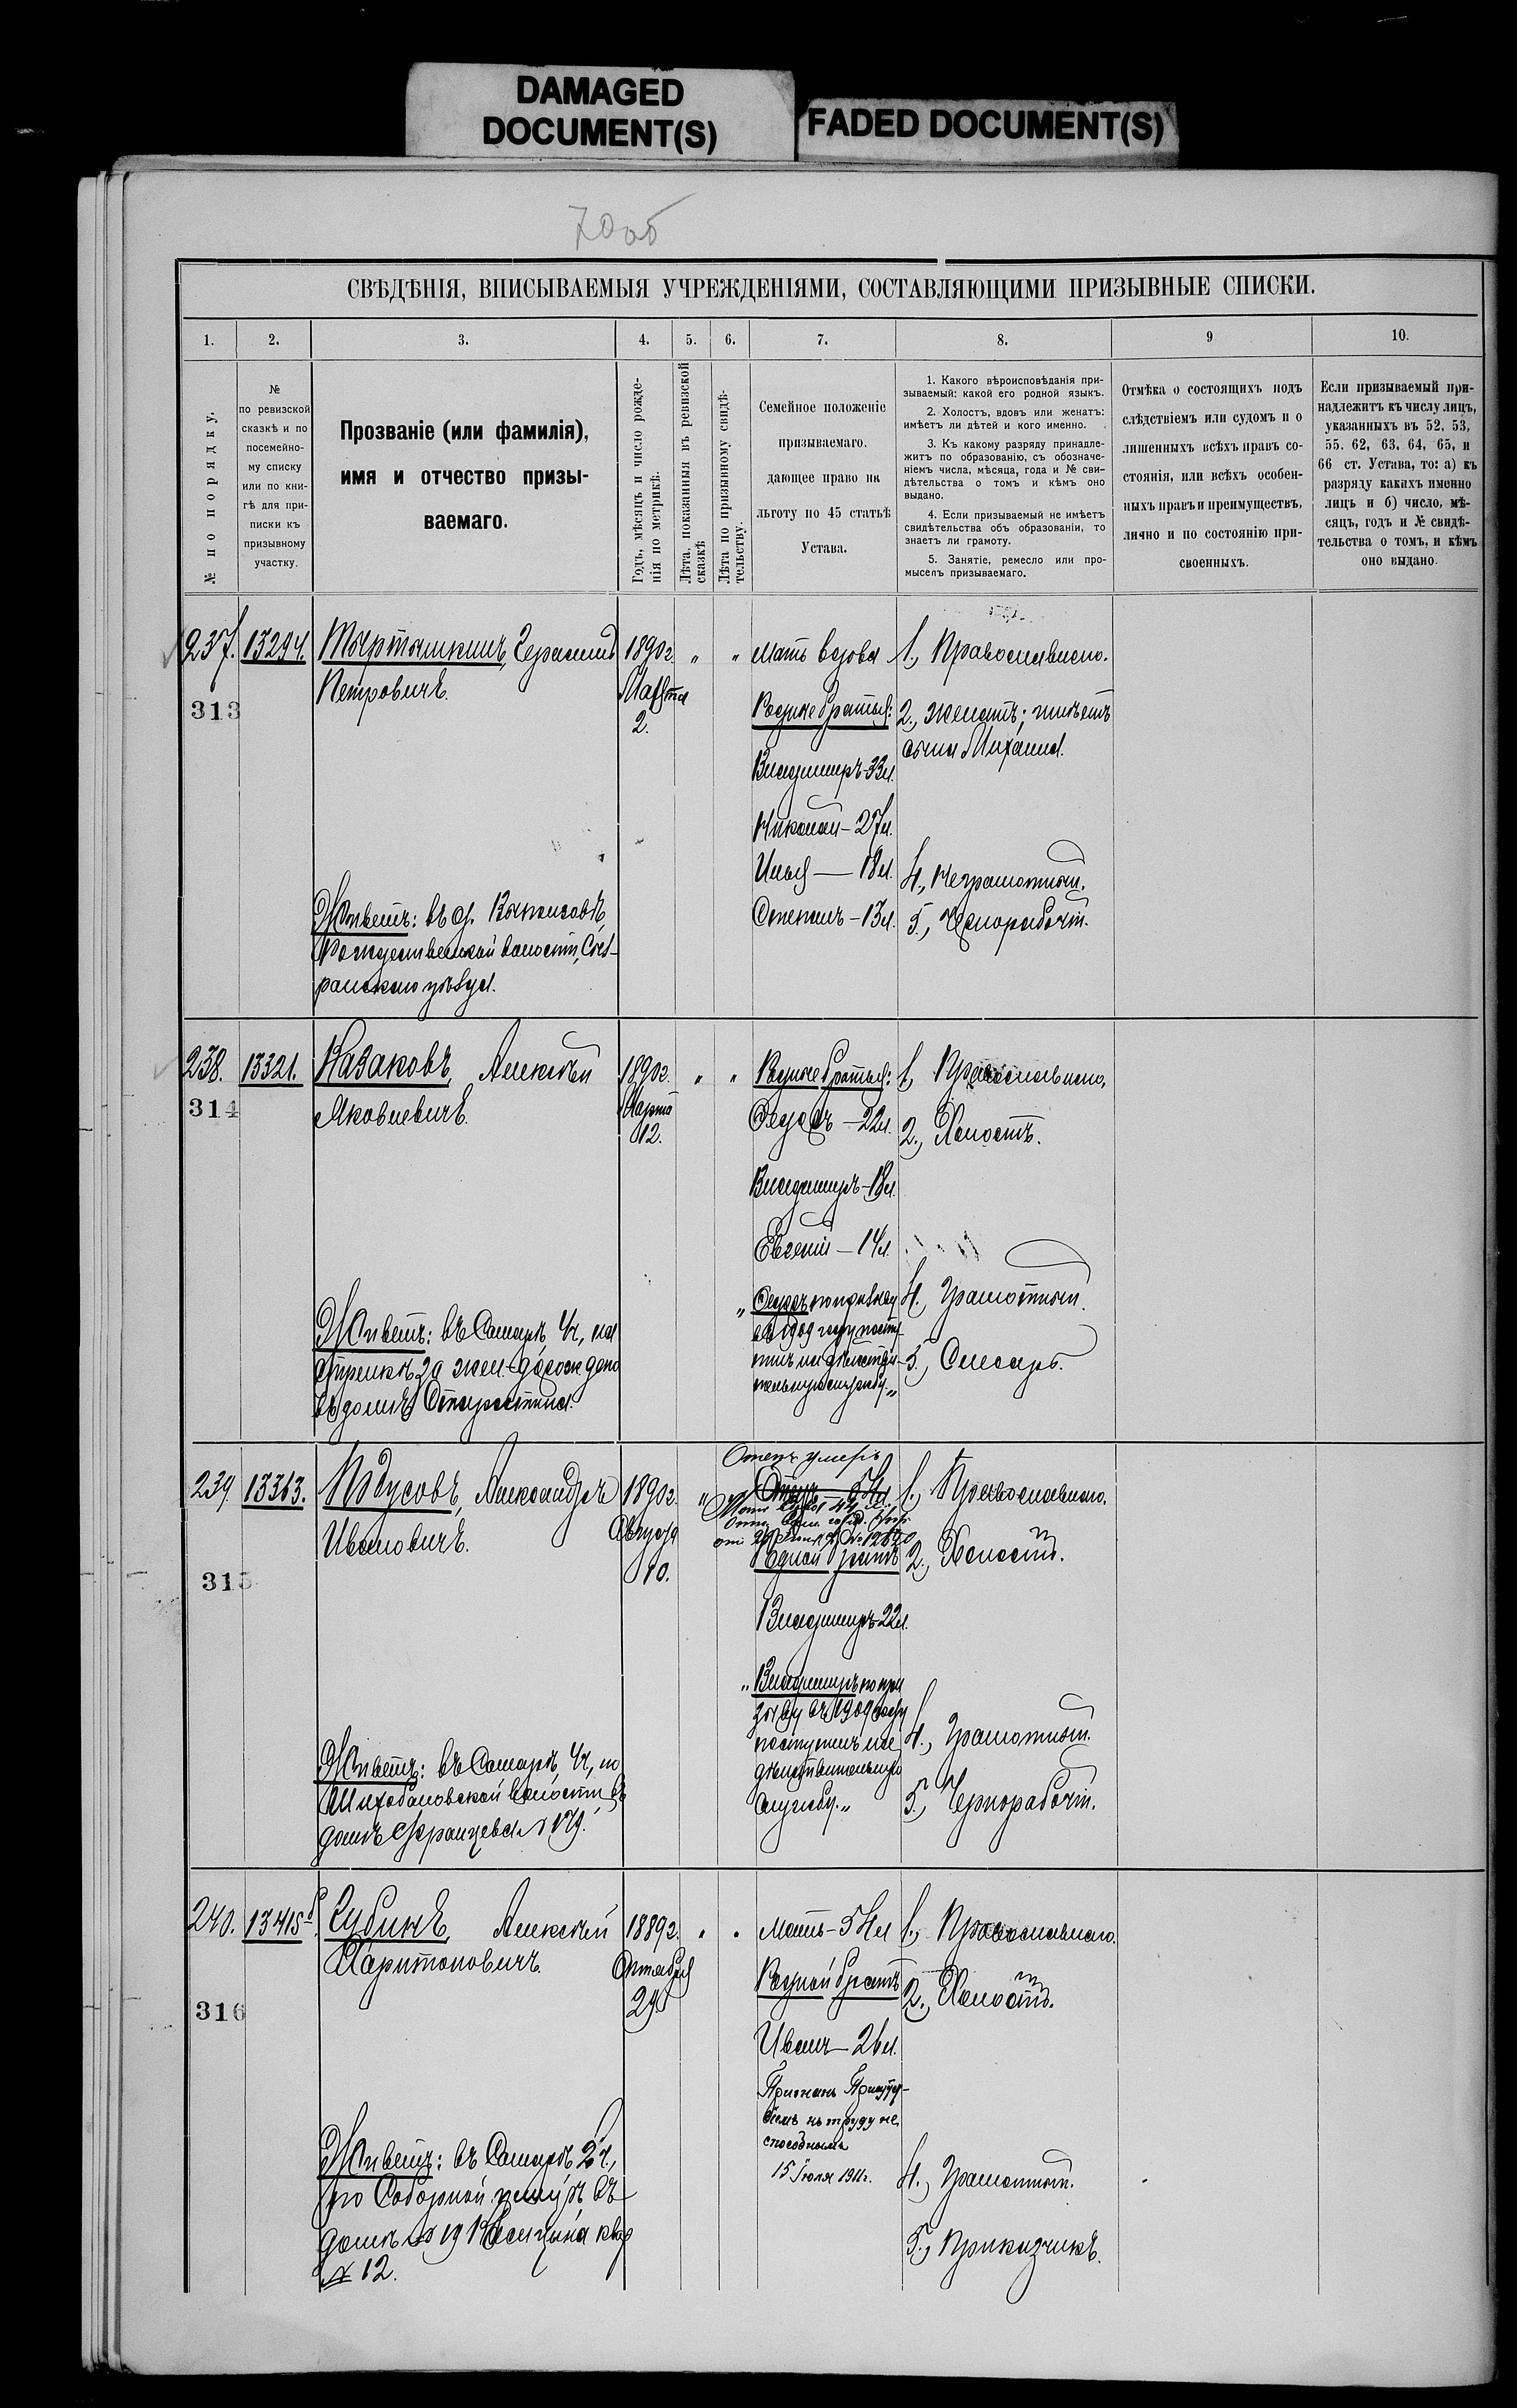 DAMAGED
DOCUMENT(S)
FADED DOCUMENT(S)
70об
СВѢДѢНІЯ, ВПИСЫВАЕМЫЯ УЧРЕЖДЕНІЯМИ, СОСТАВЛЯЮЩИМИ ПРИЗЫВНЫЕ СПИСКИ.
1. 2. 3. 4. 5. 6. 7. 8. 9 10.
№ по порядку.
№
по ревизской
сказкѣ и по
посемейно-
му списку
или по кни-
гѣ для при-
писки къ
призывному
участку.
Прозваніе (или фамилія),
имя и отчество призы-
ваемаго.
Годъ, мѣсяцъ и число рожде-
нія по метрикѣ.
Лѣта, показанныя въ ревизской
сказкѣ
Лѣта по призывному свидѣ-
тельству.
Семейное положеніе
призываемаго.
дающее право на
льготу по 45 статьѣ
Устава.
1. Какого вѣроисповѣданія при-
зываемый: какой его родной языкъ.
2. Холостъ, вдовъ или женатъ:
имѣетъ ли дѣтей и кого именно.
3. Къ какому разряду принадле-
житъ по образованію, съ обозначе-
ніемъ числа, мѣсяца, года и № сви-
дѣтельства о томъ и кѣмъ оно
выдано.
4. Если призываемый не имѣетъ
свидѣтельства объ образованіи, то
знаетъ ли грамоту.
5. Занятіе, ремесло или про-
мыселъ призываемаго.
Отмѣка о состоящихъ подъ
слѣдствіемъ или судомъ и о
лишенныхъ всѣхъ правъ со-
стоянія, или всѣхъ особен-
ныхъ правъ и преимуществъ,
лично и по состоянію при-
своенныхъ.
Если призываемый при-
надлежитъ къ числу лицъ,
указанныхъ въ 52, 53,
55. 62, 63, 64, 65, и
66 ст. Устава, то: а) къ
разряду какихъ именно
лицъ и б) число, мѣ-
сяцъ, годъ и № свидѣ-
тельства о томъ, и кѣмъ
оно выдано.
237. 13294.
313
Мартышкинъ, Герасимъ
Петровичъ.
Живетъ: въ
Рождественской волости, Сыз-
ранскаго уѣзда.
1890г.
Марта
2.
" "
Мать вдова
Родные братья:
Владиміръ-33л.
Николай-27л.
Илья — 18л.
Степанъ-13л.
1., Православнаго.
2., женатъ; имѣетъ
сына Михаила.
4., Неграмотный.
5., Чернорабочій.
238. 13321.
314
Казаковъ, Алексѣй
Яковлевичъ.
Живетъ: въ Самарѣ 4ч, на
стрелкѣ за жел-дорож депо
въ домѣ Старостина.
1890г.
Марта
12.
" "
Родные братья:
Ѳедоръ-22л.
Владиміръ-18л.
Евгеній-14л.
"Ѳедоръ по призыву
въ 1909 году посту-
пилъ на дѣйстви-
тельную службу."
1., Православнаго,
2., Холостъ.
4., Грамотный.
5., Слесарь.
239. 13363.
315
Александръ
Ивановичъ.
Живетъ: въ Самарѣ, 4ч, по
въ
домѣ № 179.
1890г.
Августа
10.
"
Отецъ умеръ
Отецъ
Родной братъ
Владиміръ-22л.
"Владиміръ по при
зыву въ 1909 году
поступилъ на
дѣйствительную
службу."
1., Православнаго.
2., Холостъ.
4., Грамотный.
5., Чернорабочій.
240. 13415
316
Губинъ, Алексѣй
Харитоновичъ.
Живетъ: въ Самарѣ 2ч.,
по Соборной улицѣ въ
домѣ № 19 кв
№ 12.
1889г.
Октября
29
" "
Мать-54л
Родной братъ
Иванъ-26л.
Признанъ Присут-
ствіемъ къ труду не
способнымъ
15 Іюля 1911г.
1., Православнаго.
2., Холостъ.
4., Грамотный.
5., Приказчикъ.